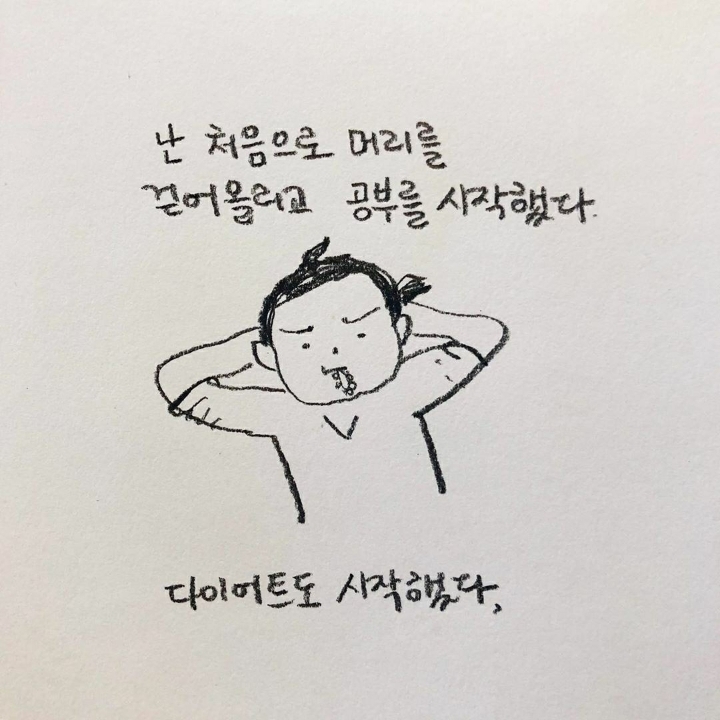 난 처음으로 머리를
걷어올리고 공부를 시작했다.
다이어트도 시작했다,